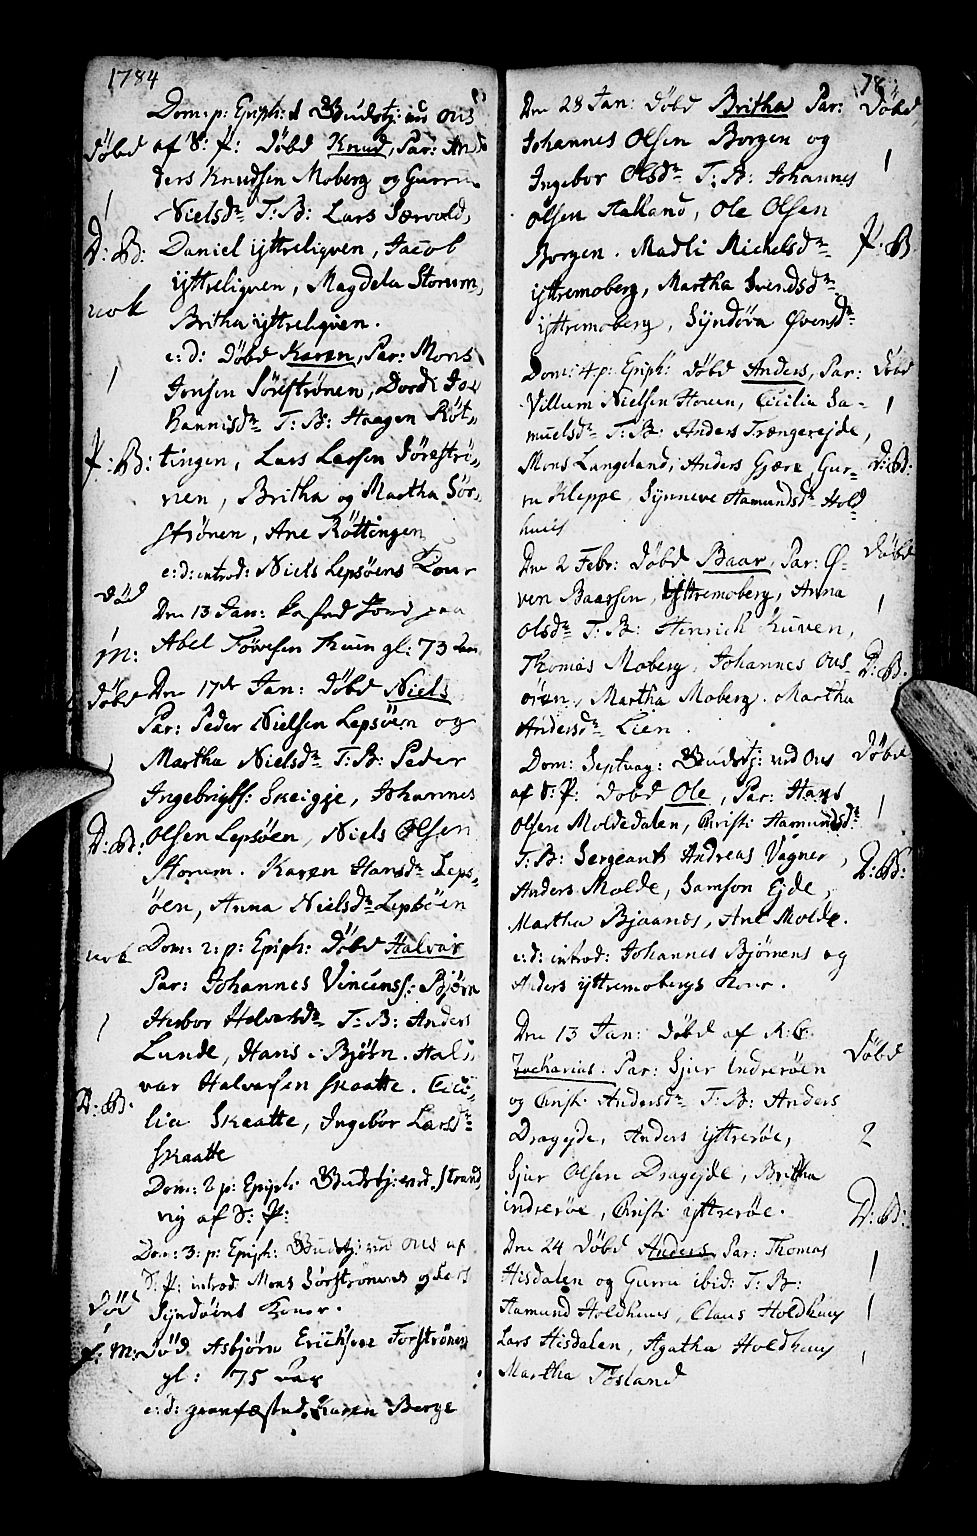 1784
Dom: p: Epiph: 1 Gudstj: ved Ous
Döbd af S: P: Döbd Knud, Par: An-
ders Knudsen Moberg og Gurru
1
Nielsdr T: B: Lars Særvold,
D: B: Daniel ÿttreligven, Jacob
ÿttreligven, Magdela Storum,
nok
Britha ÿttreligven.
e: d: Döbd Karen, Par: Mons
1
Jonsen Sörströnen, Dordi Jo-
hannisdr T: B: Haagen Röt-
P: B: tingen, Lars Larsen Sörströ-
nen, Britha og Martha Sör-
strönen, Ane Röttingen
e: d: introd: Niels Lepsöens Konr
Död
Den 13 Jan: Jord paa
Abel Tövesen Tuen gl: 73 Aar
M:
Döbd Den 17de Jan: Döbd Niels
Par: Peder Nielsen Lepsöen og
Martha Nielsdr T: B: Peder
1
Ingebrigts: Skeigje, Johannes
D: B: Olsen Lepsöen, Niels Olsen
Storum. Karen Hansdr Leps-
öen, Anna Nielsdr Lepsöen
nok Dom: 2: p: Epiph: Döbd Halvar
Par: Johannes Vincents: Björn
1
Herbor Halvarsdr T: B: Anders
Lunde, Hans i Björn. Hal-
var Halvarsen Skaatte. Ceci-
D: B.
lia Skaatte, Ingebor Larsdr
Skaatte
Dom: 2 p: Epiph: Gudstj: ved Strand
vig af S: P:
Dom: 3: p: Epiph: Gudstj: ved Ous af
S: P: introd: Mons Sörströnens og
Död
Syndöens Konor.
M: Död Asbjörn Erichsen Forströnen
gl: 75 Aar
e: d: Karen Berge
78
Den 28 Jan: Döbd Britha Par: Döbd
Johannes Olsen Borgen og
1
Ingebor Olsdr T: B: Johannes
Olsen Aakland, Ole Olsen
Borgen. Madli Michelsdr P: B
ÿttremoberg, Martha Svendsdr
ÿttremoberg, Sÿndöva Övensdr
Dom: 4 p: Epiph: Döbd Anders, Par: Döbd
Villum Nielsen Houen, Cicilia Sa-
1
muelsdr T: B: Anders Trængerejde,
Mons Langeland, Anders Gjære, Gur- D: B:
ru Kleppe, Synneve Aamundsdr Hold
huus
Den 2 Febr: Döbd Baar, Par: Ö- Döbd
ven Baarsen, ÿttremoberg, Anna
1
Olsdr T: B: Henrich Kuven,
Thomas Moberg, Johannes Ous D: B.
ören, Martha Moberg. Martha
Andersdr Lien.
Dom: Septuag: Gudstj: ved Ous Döbd
af S: P: Döbd Ole, Par: Hans
1
Olsen Moldedalen, Christi Aamundsdr
T: B: Sergeant Andreas Vagner, D: B:
Anders Molde, Samson Ejde,
Martha Bjaanes, Ane Molde.
e: d: introd: Johannes Björnens og
Anders ÿttremobergs Konr.
Den 13 Jan: Döbd af R: C: Döbd
Zacharius. Par: Sjur Indreröen
og Christi Andersdr T: B: Anders
Dragejde, Anders ÿttreröe, 2
Sjur Olsen Dragejde, Britha
indreröe, Christi ÿttreröe. D: B:
Den 24 Döbd Anders, Par: Thomas
1
Hisdalen og Gurru ibid: T: B:
Aamund Holdhuus, Claus Holdhuus 1
Lars Hisdalen, Agatha Holdhuus
1
Martha Tösland